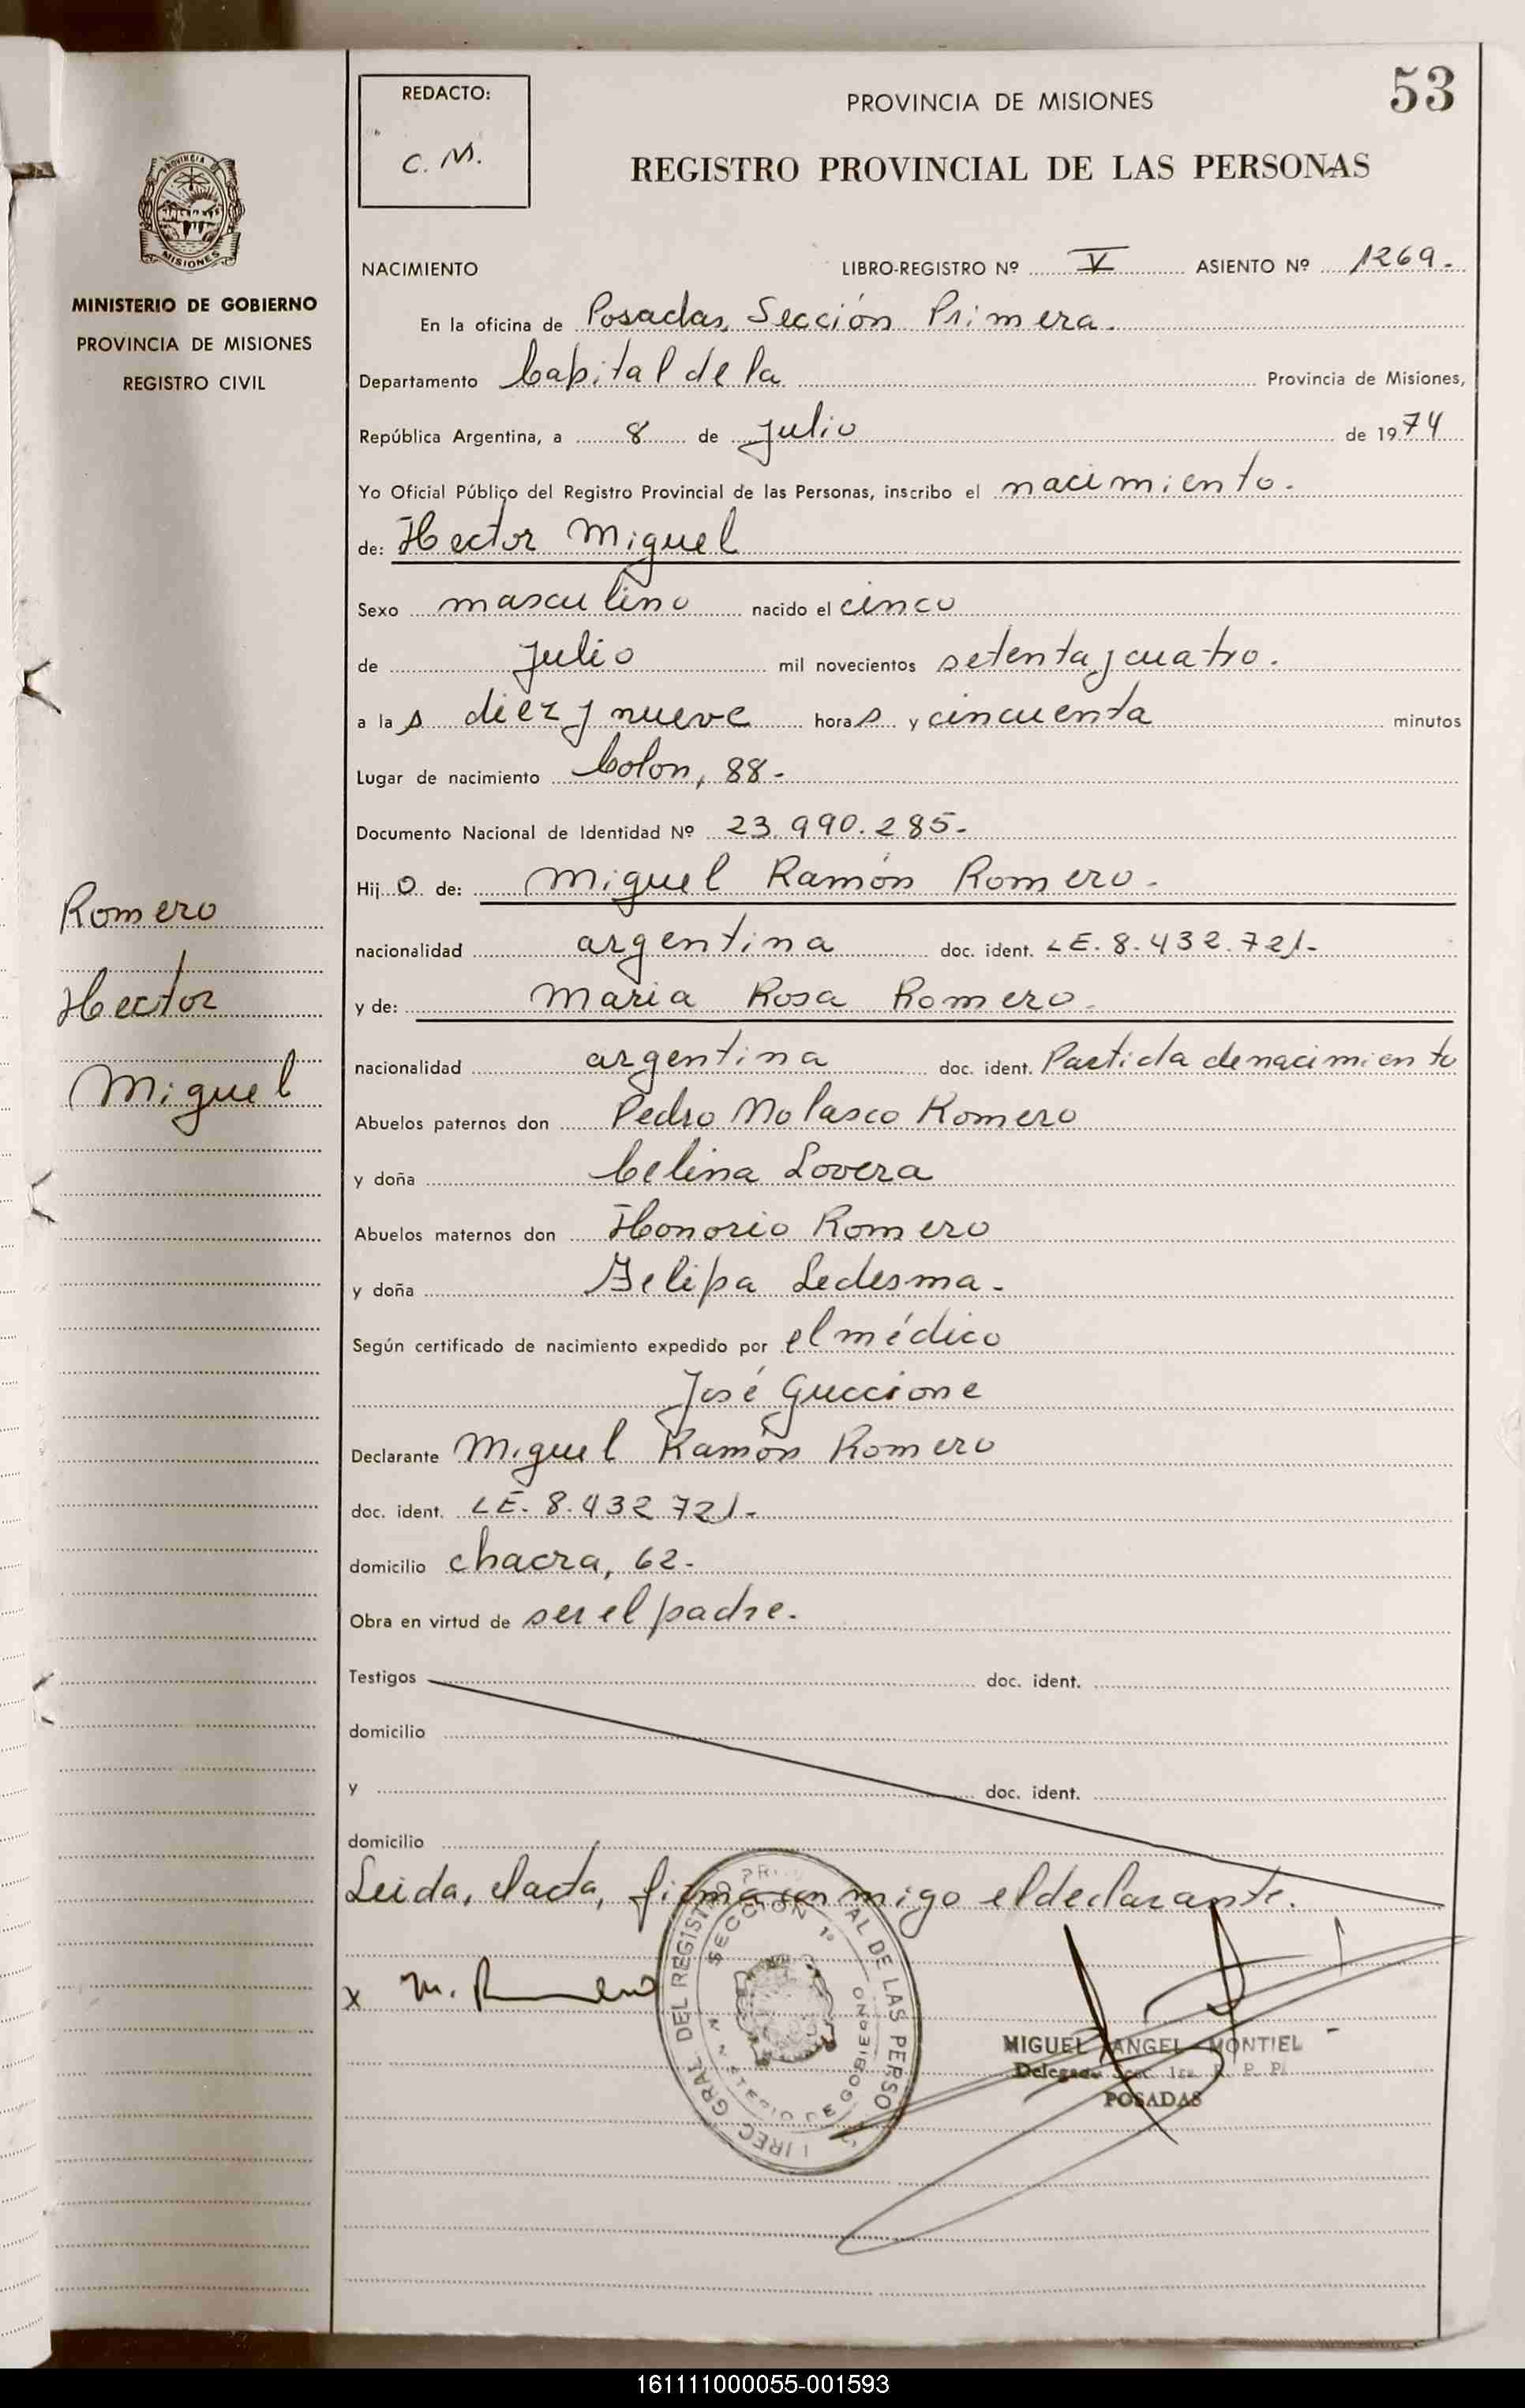 53
REDACTO:
C. M.
PROVINCIA DE MISIONES
REGISTRO PROVINCIAL DE LAS PERSONAS
PROVINCIA
MISIONES
MINISTERIO DE GOBIERNO
PROVINCIA DE MISIONES
REGISTRO CIVIL
NACIMIENTO LIBRO-REGISTRO Nº V ASIENTO Nº 1269.
En la oficina de Posadas, Sección Primera.
Departamento Capital de la Provincia de Misiones,
República Argentina, a 8 de Julio de 1974
Yo Oficial Público del Registro Provincial de las Personas, inscribo el nacimiento.
de: Hector Miguel
Sexo masculino nacido el cinco
de Julio mil novecientos setenta y cuatro.
a las diez y nueve horas y cincuenta minutos
Lugar de nacimiento Colon, 88-
Documento Nacional de Identidad Nº 23.990.285-
Hijo de: Miguel Ramón Romero-
nacionalidad argentina doc. ident. LE. 8.432.721-
y de: Maria Rosa Romero-
nacionalidad argentina doc. ident. Partida de nacimiento
Abuelos paternos don Pedro Nolasco Romero
y doña Celina Lovera
Abuelos maternos don Honorio Romero
y doña Felipa Ledesma-
Según certificado de nacimiento expedido por el médico
José Guccione
Declarante Miguel Ramón Romero
doc. ident. LE. 8.432 721-
domicilio chacra, 62-
Obra en virtud de ser el padre.
Testigos doc. ident.
domicilio
y doc. ident.
domicilio
Leida, el acta, firma con migo el declarante.
x M. Romero
MIGUEL ANGEL MONTIEL
Delegado Secc. 1ra. R. P. P.
POSADAS
Romero
Hector
Miguel
161111000055-001593